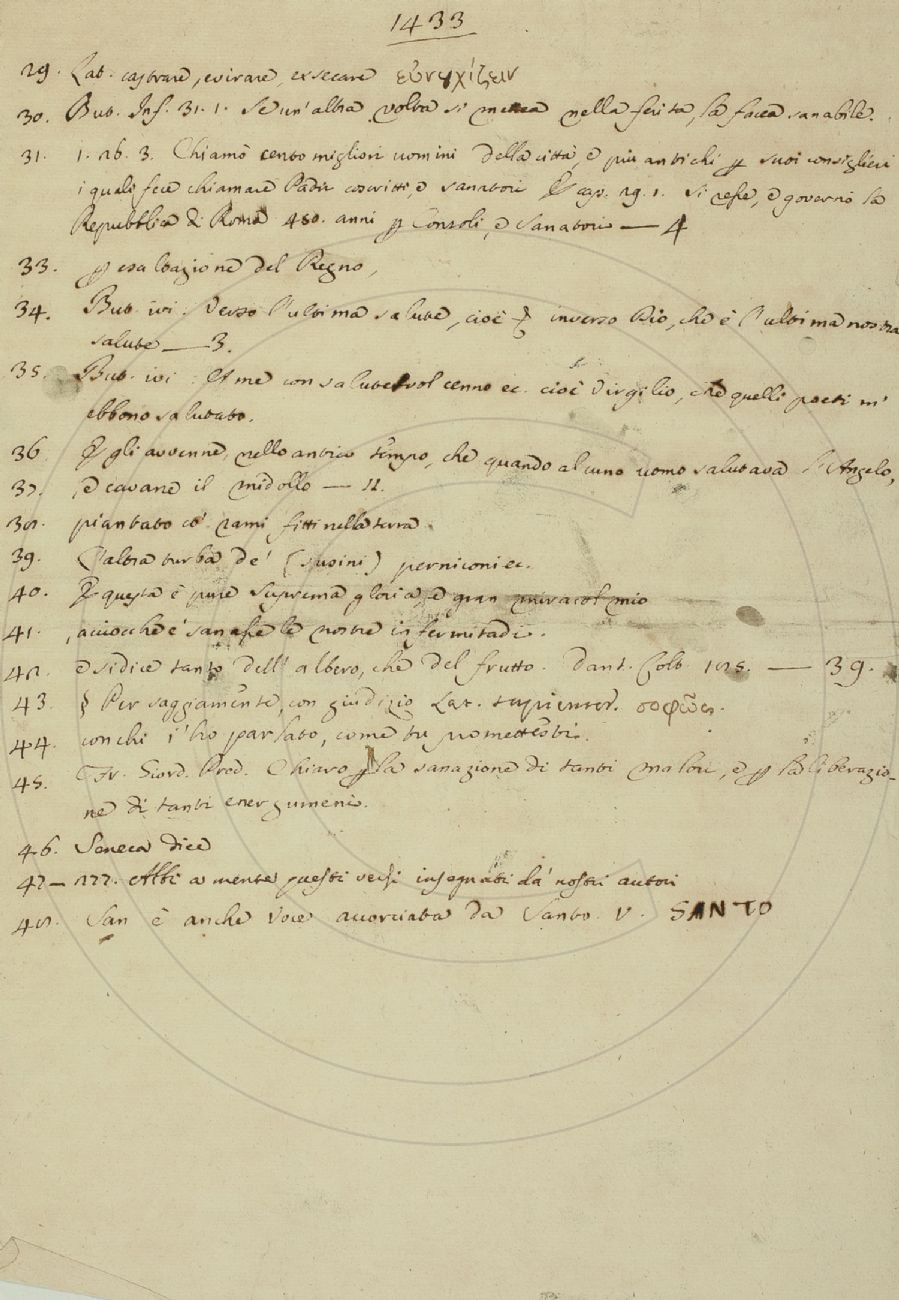 1433
29. Lat. castrare, evirare, exsecare εὐνουχίζειν
30. But. Inf. 31. 1. Se un'altra volta si metta nella ferita, la facea sanabile.
31. 1. 26. 3. Chiamò cento migliori uomini della città, e più antichi p suoi consiglieri
i quali fece chiamare Padri coscritti, e sanatori E cap. 29. 1. Si resse, e governò la
Repubblica di Roma 450. anni p Consoli, e Sanatori — 4
33. p esaltazione del Regno,
34. But. ivi. Verso l'ultima salute, cioè inverso Dio, che è l'ultima nostra
salute — 3.
35. But. ivi: Et me con salutevol cenno ec. cioè Virgilio, che quelli poeti m'
ebbono salutato.
36 E gli avvenne, nello antico tempo, che quando alcuno uomo salutava l'Angelo,
37. , e cavane il midollo — 11.
38. piantato co' rami fitti nella terra
39. L'altra turba de' (susini) perniconi ec.
40. E questa è pure suprema gloria, e gran miracol mio
41. , acciocchè e' sanasse le nostre infermitadi.
42. e si dice tanto dell' albero, che del frutto. Dant. Colt. 175. — 39.
43 § Per saggiamente, con giudizio Lat. sapienter. σοφῶς.
44. con chi i' ho parlato, come tu promettesti.
45. Fr. Giord. Pred. Chiaro p la sanazione di tanti malori, e p la liberazio-
ne di tanti energumeni.
46. Seneca dice
47 — 177. Abbi a mente questi versi insegnati da' nostri autori
48. San è anche voce accorciata da Santo. V. SANTO